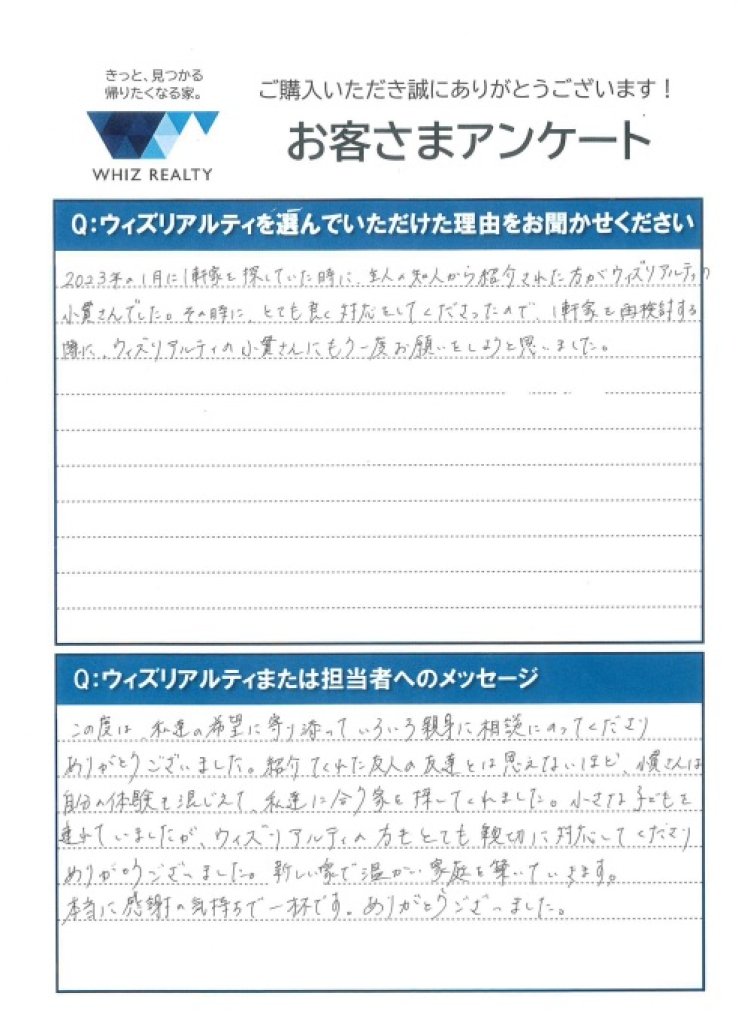 きっと、見つかる
帰りたくなる家。
WHIZ REALTY
ご購入いただき誠にありがとうございます！
お客さまアンケート
Q：ウィズリアルティを選んでいただけた理由をお聞かせください
2023年の1月に1軒家を探していた時に、主人の知人から紹介された方がウィズリアルティの
小貫さんでした。その時に、とても良く対応をしてくださったので、1軒家を再検討する
際に、ウィズリアルティの小貫さんにもう一度お願いをしようと思いました。
Q：ウィズリアルティまたは担当者へのメッセージ
この度は、私達の希望に寄り添っていろいろ親身に相談にのってくださり
ありがとうございました。紹介てくれた友人の友達とは思えないほど、小貫さんは
自分の体験も混じえて、私達に合う家を探してくれました。小さな子どもを
連れていましたが、ウィズリアルティの方もとても親切に対応してくださり
ありがとうございました。新しい家で温かい家庭を築いていきます。
本当に感謝の気持ちで一杯です。ありがとうございました。